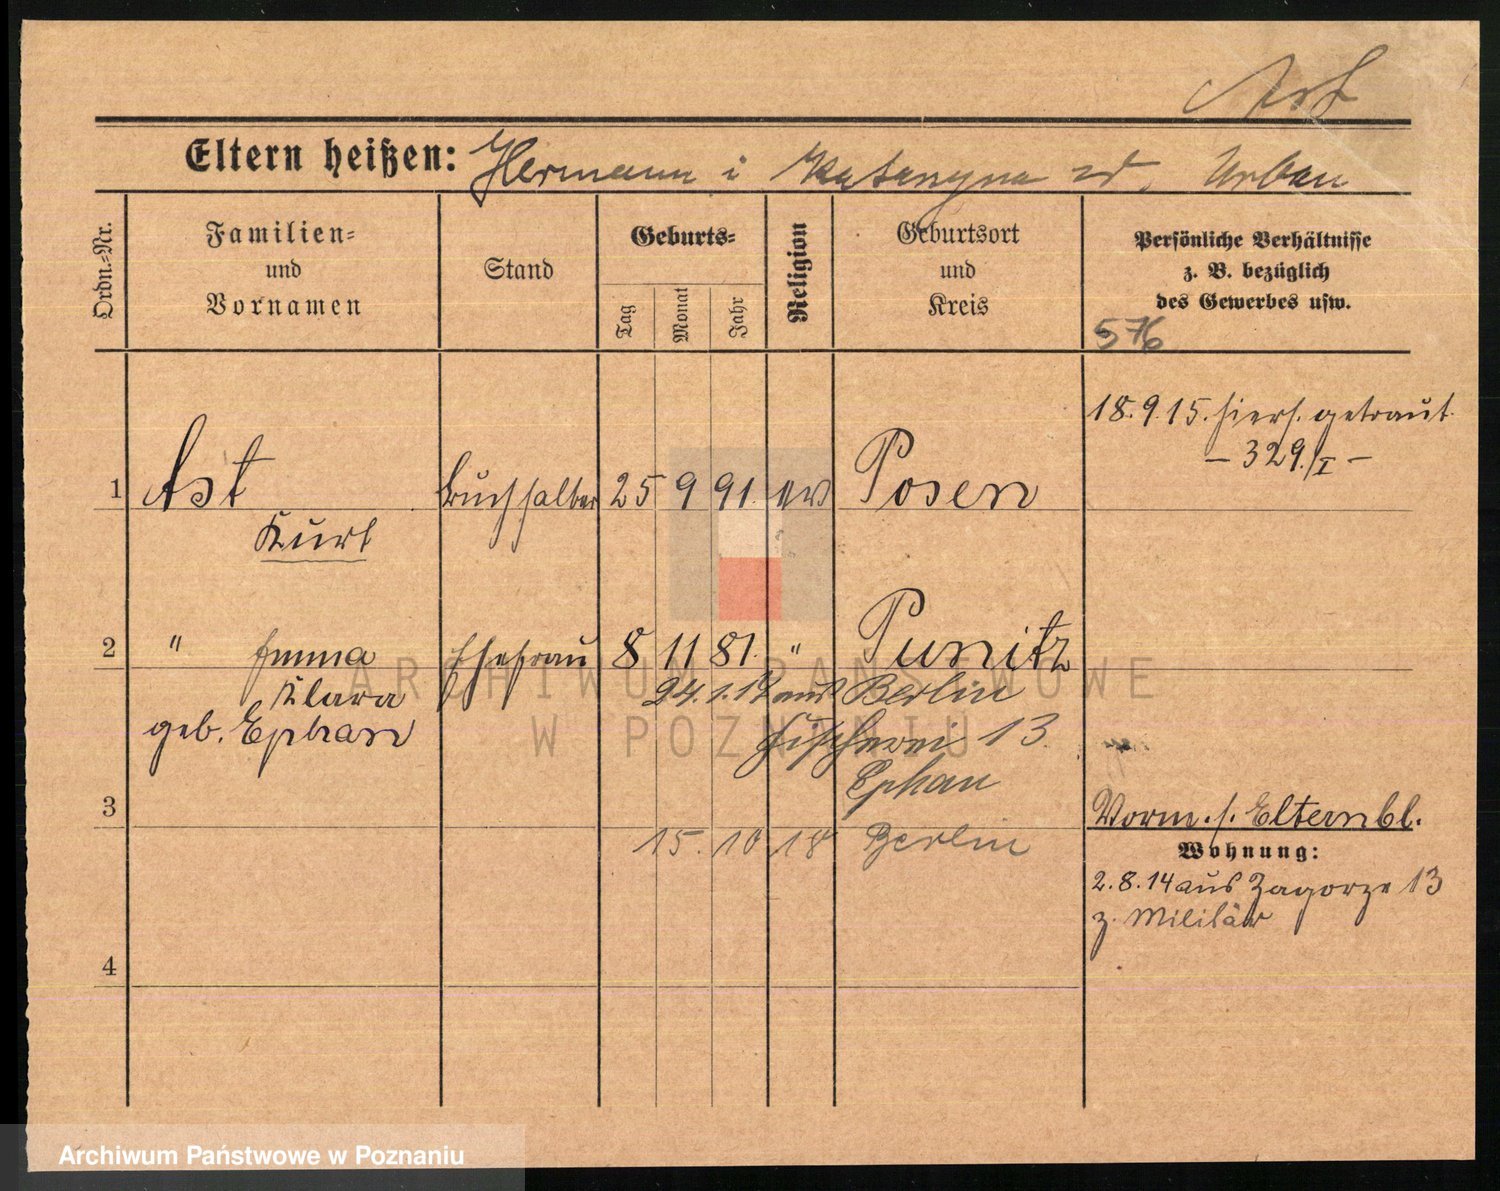 Ast
Eltern heißen: Hermann i Katarzyna zd. Urban
Ordn.-Nr.
Familien-
und
Vornamen
Stand
Geburts-
Tag
Monat
Jahr
Religion
Geburtsort
und
Kreis
Persönliche Verhältnisse
z. B. bezüglich
des Gewerbes usw.
576
18.9.15. hiers. getraut
- 329./I -
1 Ast Buchhalter 25 9 91. ev Posen
Kurt
2 " Emma Ehefrau 8 11 81. " Punitz
Klara 24.1.14 aus Berlin
geb. Ephan Fischerei 13
Ephan
3
Vorm. s. Elternbl.
15. 10 18 Berlin
Wohnung:
2.8.14 aus Zagorze 13
z. Militär
4
ARCHIWUM PAŃSTWOWE
W POZNANIU
Archiwum Państwowe w Poznaniu